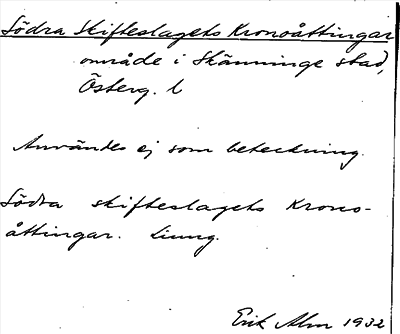 Södra Skifteslagets Kronoåttingar
område i Skänninge stad,
Österg. l
Användes ej som beteckning.
Södra skifteslagets Krono-
åttingar. Liung.
Erik Alm 1932